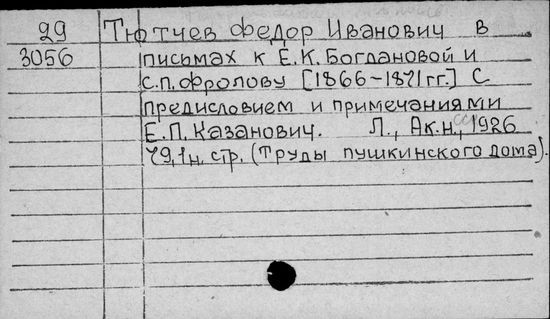 29 Тютчев Федор Иванович в
3056 письмах к Е.К. Богдановой и
С.П. Фролову [1866-1871 гг.] С
предисловием и примечаниями
Е.П. Казанович. Л., Ак.н., 1926
79,1н. стр. (Труды пушкинского дома).